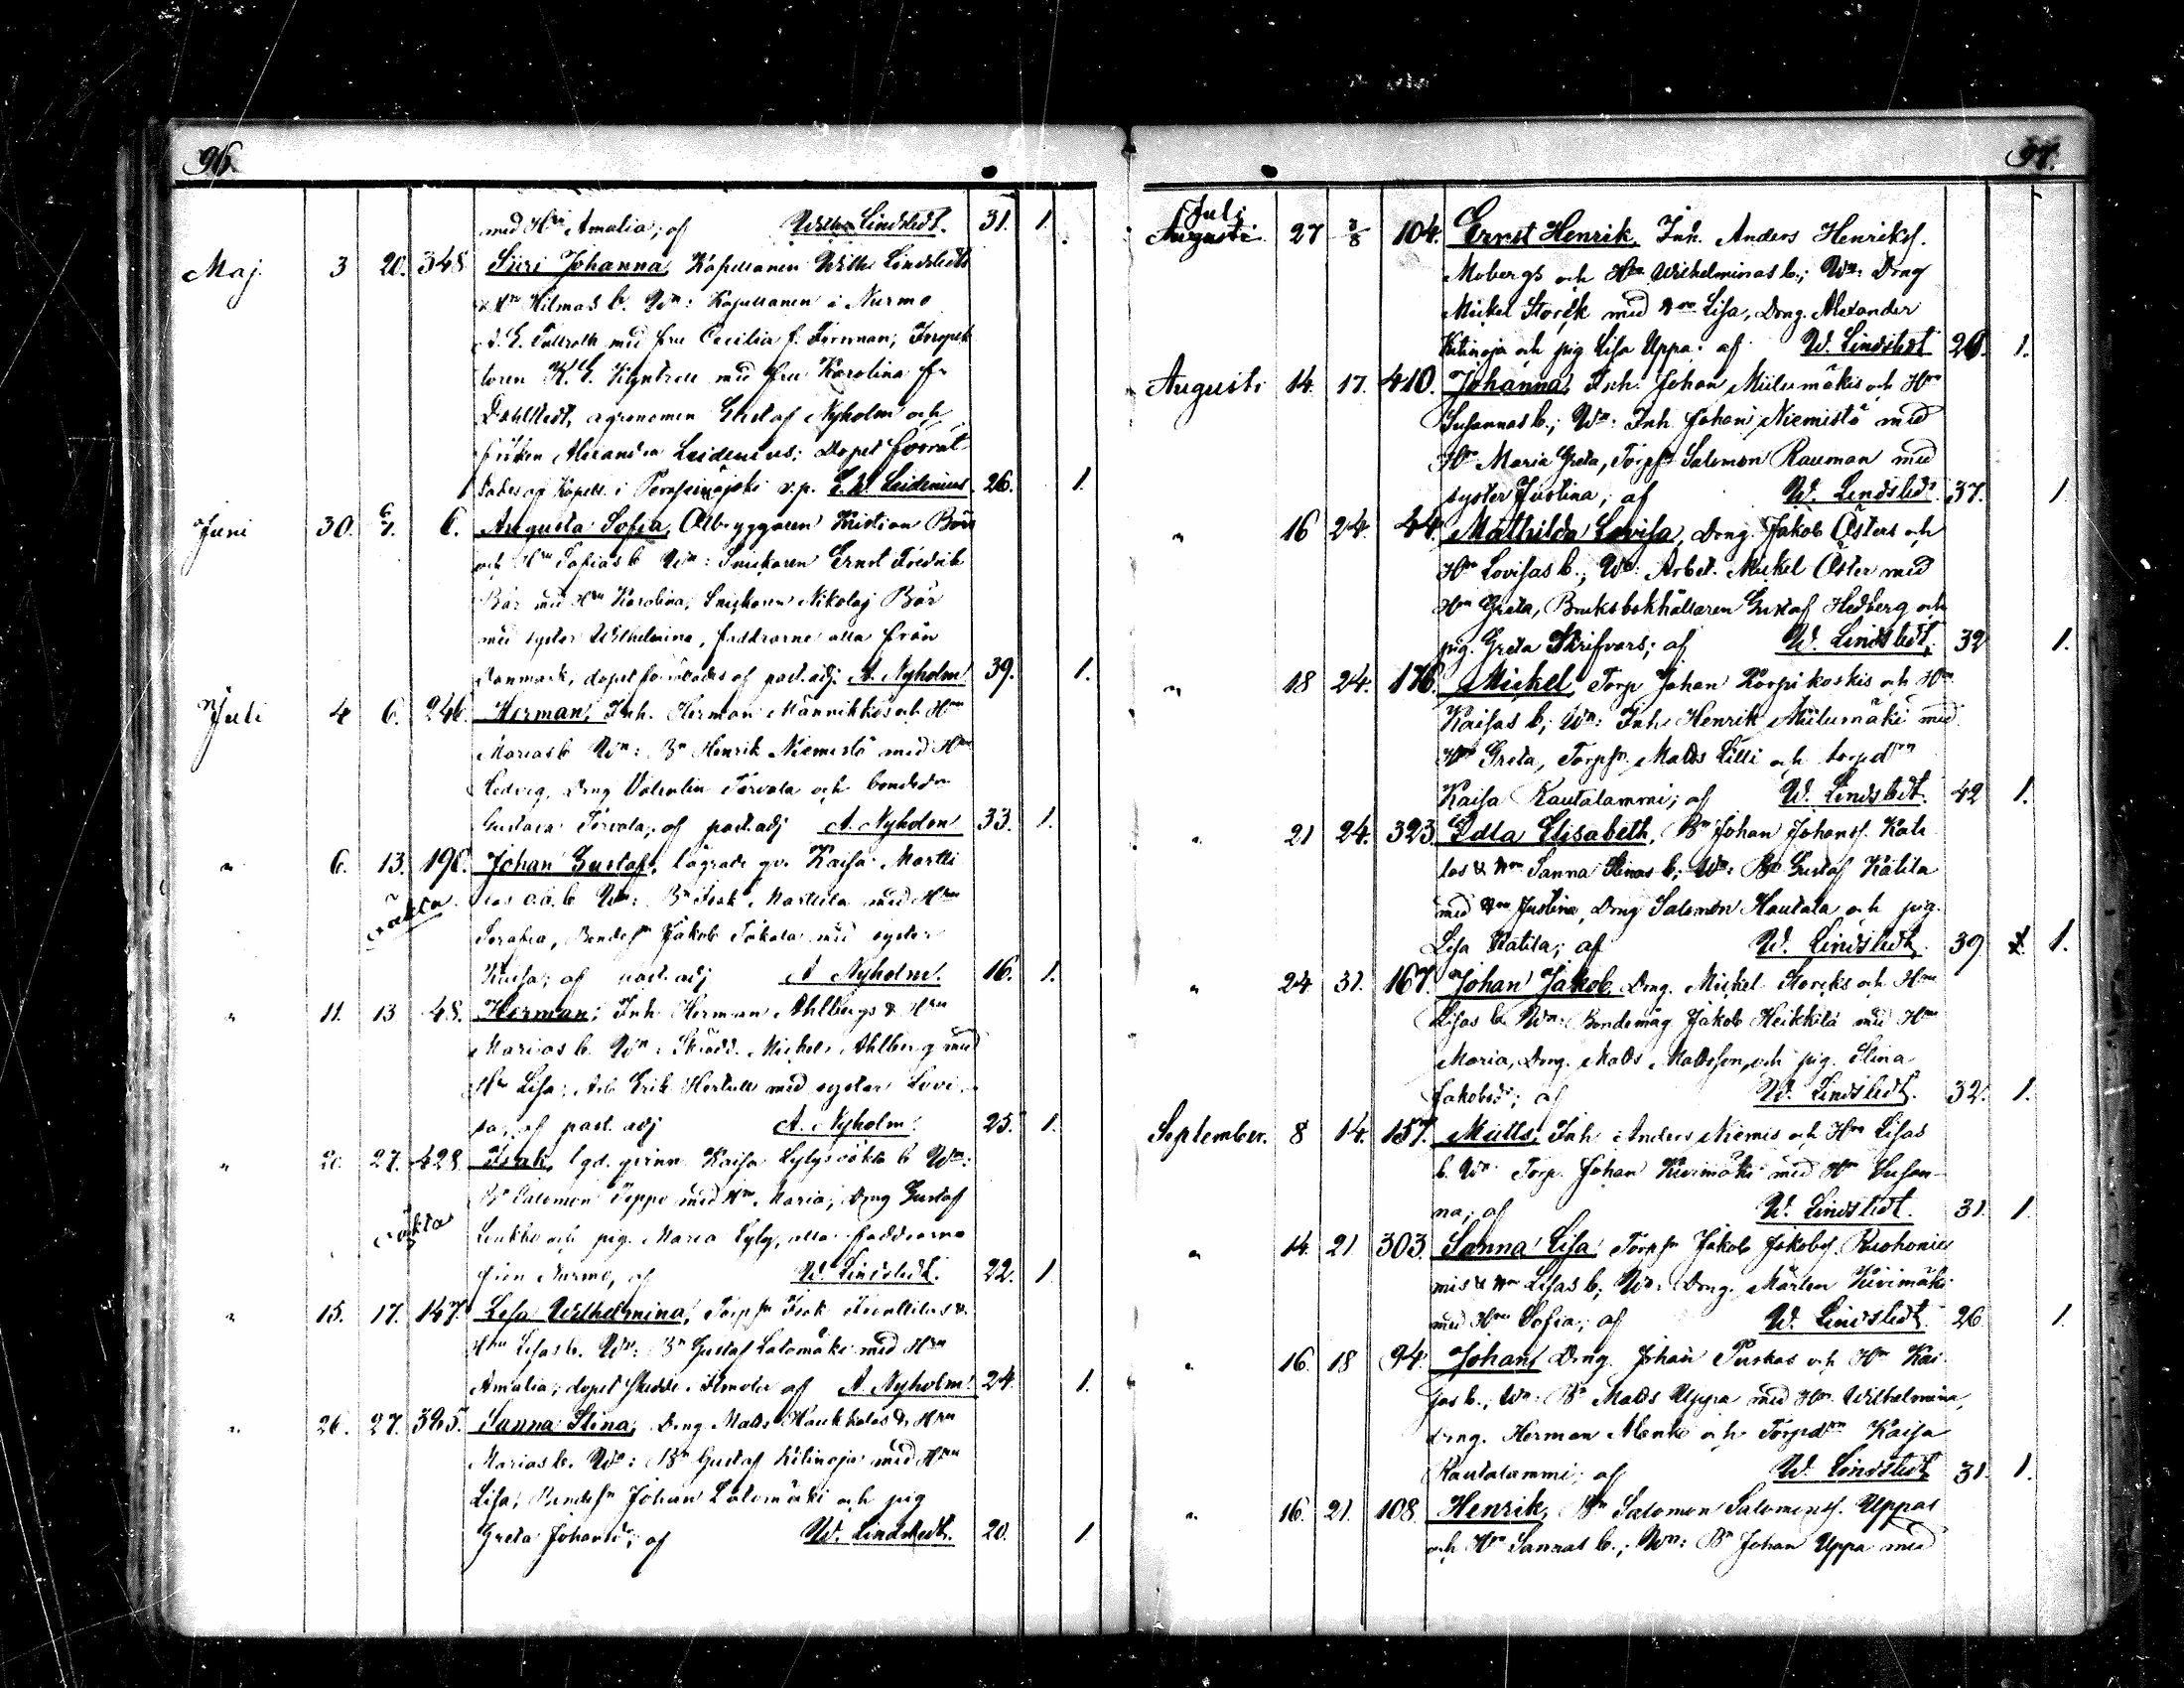 96.
med Hu Amalia; af Wilh. Lindstedt. 31. 1.
Maj. 3 20. 348 Siiri Johanna, Kapellanen Wilh. Lindstedts
& Hu Hilmas b. Wn: Kapellanen i Nurmo
med fru Cecilia f. Forsman; Inspek
toren K. E. med fru Karolina f.
Dahlstedt, agronomen Gustaf Nyholm och
fröken Alexandra Leidenius; Dopet förrät
tades af Kapell. i Peräseinäjoki v.p. Leidenius. 26. 1.
Juni 30. 6/7. 6. Augusta Sofia, Ölbryggaren Kristian Bärs
och Hu Sofias b. Wn: Snickaren Ernst Fredrik
Bär med Hu Karolina; Snickaren Nikolaj Bär
med syster Wilhelmina, faddrarne alla från
Danmark, dopet förrättades af past. adj. A. Nyholm 39. 1.
Juli 4 6. 246. Herman, Inh. Herman Männikkös och Hu
Marias b. Wn: Bn Henrik Niemistö med Hu
Hedvig, dräng Valentin Törvola och bonded.
Gustava Törvola; af past. adj A. Nyholm 33. 1.
" 6. 13. 196. Johan Gustaf, lägrade qv. Kaisa Martti
las o.ä. b. Wn: Bn Isak Marttila med Hu
oäkta
Serafia, Bondes. Jakob Jokela med syster
Kaisa; af past. adj A. Nyholm. 16. 1.
" 11. 13 48. Herman, Inh. Herman Ahlbergs & Hu
Marias b. Wn: Skrädd. Mickel Ahlberg med
Hu Lisa; Arb. Erik Hertell med syster Lovi-
sa; af past. adj A. Nyholm. 25. 1.
" 20. 27. 428. Isak, lgd. qvinn. Kaisa Lylys oäkta b. Wn:
Bn Salomon Seppo med Hu Maria; Drng Gustaf
oäkta
Luukko och pig. Maria Lyly, alla faddrarne
från Nurmo, af W. Lindstedt. 22. 1
" 15. 17. 147. Lisa Wilhelmina, Torpn Isak &
Hu Lisas b. Wn: Bn Gustaf Latomäki med Hu
Amalia; dopet skedde i Ilmola af A. Nyholm 24. 1.
" 26. 27. 325. Sanna Stina, Drng Matts Haukkalas & Hu
Marias b. Wn: Bn Gustaf Kitinoja med Hu
Lisa; Bondesn Johan Latomäki och pig
Greta Johansd.; af W. Lindstedt. 20. 1
97.
Juli
Augusti 27 3/8 104. Ernst Henrik, Inh. Anders Henriks.
Mobergs och Hu Wilhelminas b.; Wn: Drng
Mickel Storck med Hu Lisa, Drng. Alexander
Kitinoja och pig Lisa Uppa; af W. Lindstedt 26. 1.
Augusti 14. 17. 410. Johanna, Inh. Johan Miilumäkis och Hu
Susannas b.; Wn: Inh. Johan Niemistö med
Hu Maria Greta, Torpsn Salomon Rauman med
syster Justina; af W. Lindstedt. 37. 1
" 16 24. 44. Mathilda Lovisa, Drng. Jakob Östers och
Hu Lovisas b.; Wn: Arbet. Mickel Öster med
Hu Greta, Bruksbokhållaren Gustaf Hedberg och
pig. Greta Skrifvars; af W. Lindstedt, 32 1.
" 18 24. 176. Mickel, Torp. Johan Korpikoskis och Hu
Kaisas b.; Wn: Inh. Henrik Miilumäki med
Hu Greta, Torpsn Matts Lilli och torpdrn
Kaisa Rautalammi; af W. Lindstedt. 42 1.
" 21 24. 323. Edla Elisabeth, Bn Johan Johans. Käti
las & Hu Sanna Stinas b; Wn: Bn Gustaf Kätilä
med Hu Justina, Drng Salomon Hautala och pig.
Lisa Katila; af W. Lindstedt. 39 1. 1.
" 24 31. 167. Johan Jakob, Drng. Mickel Storcks och Hu
Lisas b. Wn: Bondemåg Jakob Heikkilä med Hu
Maria, Drng. Matts Mattsson, och pig. Stina
Jakobsd.; af W. Lindstedt. 32. 1.
September. 8 14. 157. Matts, Inh. Anders Niemis och Hu Lisas
b. Wn Torp. Johan Kivimäki med Hu Susan-
na; af W. Lindstedt. 31. 1.
" 14. 21 303. Sanna Lisa, Torpsn Jakob Jakobs. Ruohonie
mis & Hu Lisas b; Wn: Drng. Mårten Kivimäki
med Hu Sofia; af W. Lindstedt. 26. 1.
" 16. 18 94. Johan, Drng. Johan Puskas och Hu Kai-
sas b.; Wn: Bn Matts Uppa med Hu Wilhelmina,
drng. Herman Menko och Torpdrn Kaisa
Rautalammi; af W. Lindstedt 31. 1.
" 16. 21. 108. Henrik, Bn Salomon Salomons. Uppas
och Hu Sannas b.; Wn: Bn Johan Uppa med